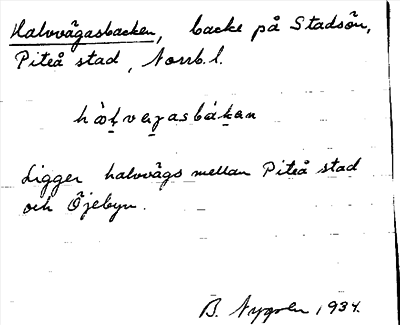 Halvvägasbacken, backe på Stadsön,
Piteå stad, Norrb. l.
Ligger halvvägs mellan Piteå stad
och Öjebyn.
B. Nygren 1934.